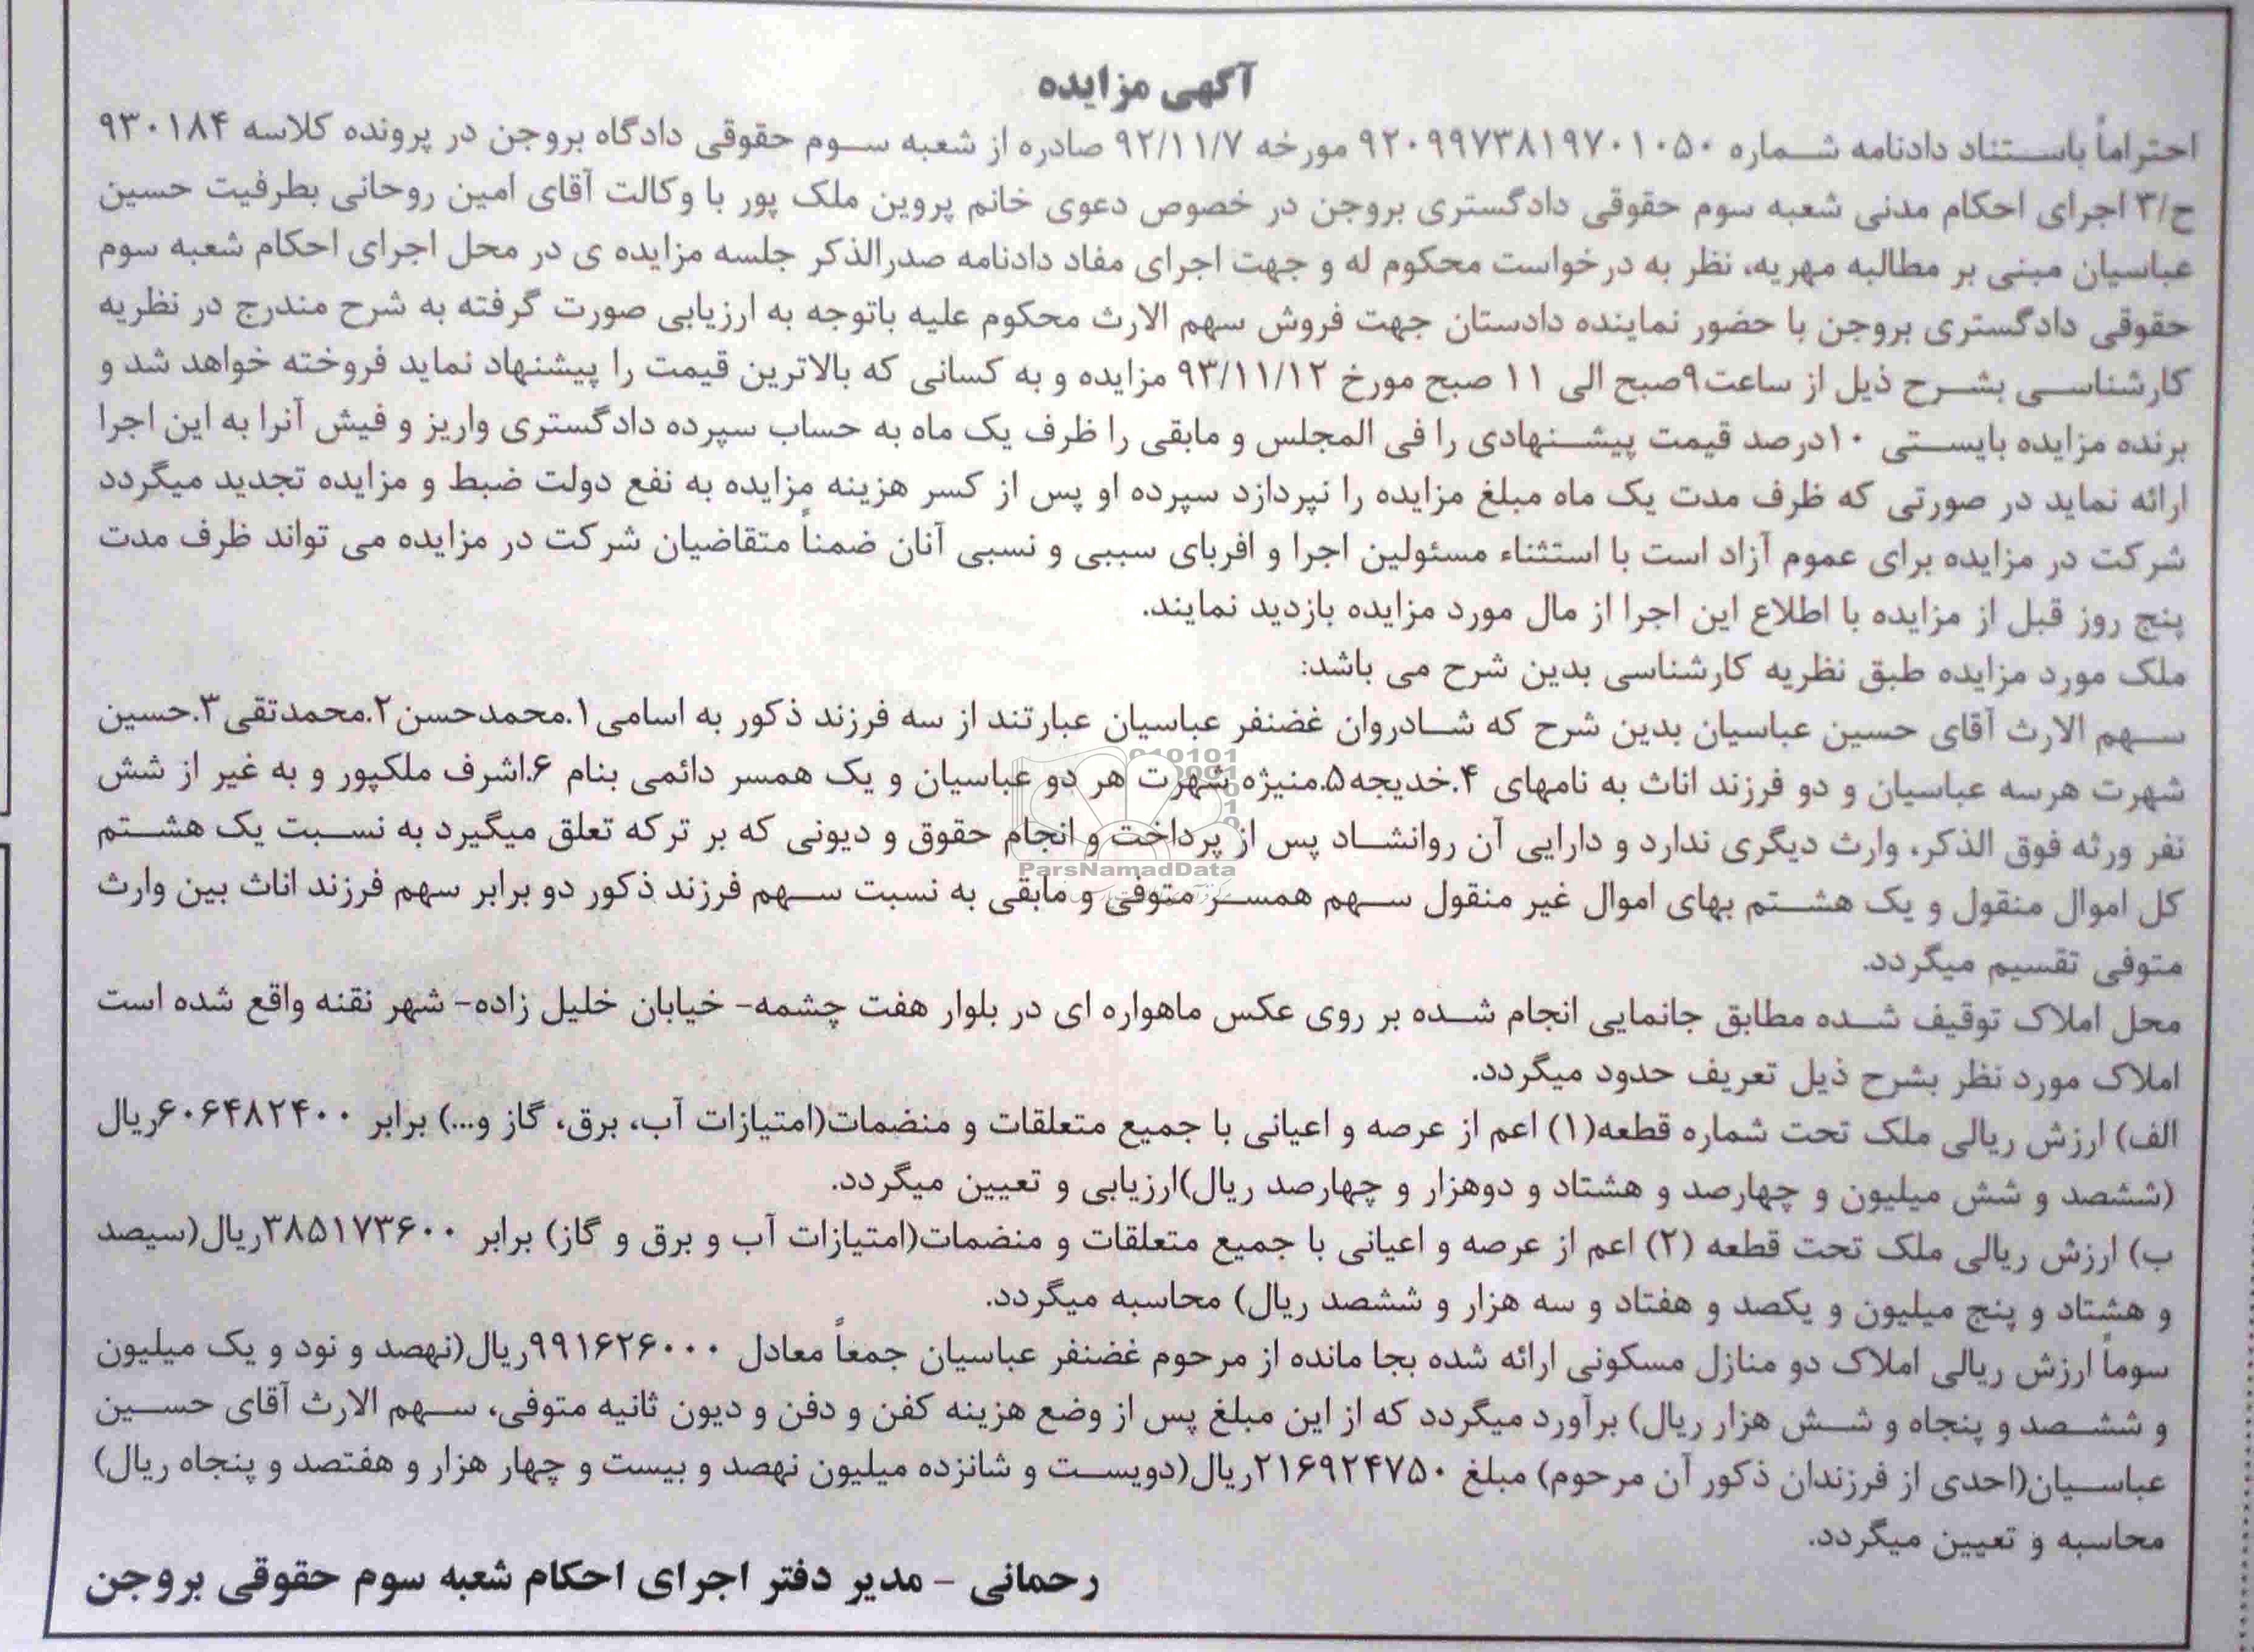 آگهی مزایده
احتراماً باستناد دادنامه شماره ۹۲۰۹۹۷۳۸۱۹۷۰۱۰۵۰ مورخه ۹۲/۱۱/۷ صادره از شعبه سوم حقوقی دادگاه بروجن در پرونده کلاسه ۹۳۰۱۸۴
ح/۳ اجرای احکام مدنی شعبه سوم حقوقی دادگستری بروجن در خصوص دعوی خانم پروین ملک پور با وکالت آقای امین روحانی بطرفیت حسین
عباسیان مبنی بر مطالبه مهریه، نظر به درخواست محکوم له و جهت اجرای مفاد دادنامه صدرالذکر جلسه مزایده ی در محل اجرای احکام شعبه سوم
حقوقی دادگستری بروجن با حضور نماینده دادستان جهت فروش سهم الارث محکوم علیه باتوجه به ارزیابی صورت گرفته به شرح مندرج در نظریه
کارشناسی بشرح ذیل از ساعت۹صبح الی ۱۱ صبح مورخ ۹۳/۱۱/۱۲ مزایده و به کسانی که بالاترین قیمت را پیشنهاد نماید فروخته خواهد شد و
برنده مزایده بایستی ۱۰درصد قیمت پیشنهادی را فی المجلس و مابقی را ظرف یک ماه به حساب سپرده دادگستری واریز و فیش آنرا به این اجرا
ارائه نماید در صورتی که ظرف مدت یک ماه مبلغ مزایده را نپردازد سپرده او پس از کسر هزینه مزایده به نفع دولت ضبط و مزایده تجدید میگردد
شرکت در مزایده برای عموم آزاد است با استثناء مسئولین اجرا و اقربای سببی و نسبی آنان ضمناً متقاضیان شرکت در مزایده می تواند ظرف مدت
پنج روز قبل از مزایده با اطلاع این اجرا از مال مورد مزایده بازدید نمایند.
ملک مورد مزایده طبق نظریه کارشناسی بدین شرح می باشد:
سهم الارث آقای حسین عباسیان بدین شرح که شادروان غضنفر عباسیان عبارتند از سه فرزند ذکور به اسامی۱.محمدحسن۲.محمدتقی۳.حسین
شهرت هرسه عباسیان و دو فرزند اناث به نامهای ۴.خدیجه۵.منیژه شهرت هر دو عباسیان و یک همسر دائمی بنام ۶.اشرف ملکپور و به غیر از شش
نفر ورثه فوق الذکر، وارث دیگری ندارد و دارایی آن روانشاد پس از پرداخت و انجام حقوق و دیونی که بر ترکه تعلق میگیرد به نسبت یک هشتم
کل اموال منقول و یک هشتم بهای اموال غیر منقول سهم همسر متوفی و مابقی به نسبت سهم فرزند ذکور دو برابر سهم فرزند اناث بین وارث
متوفی تقسیم میگردد.
محل املاک توقیف شده مطابق جانمایی انجام شده بر روی عکس ماهواره ای در بلوار هفت چشمه- خیابان خلیل زاده- شهر نقنه واقع شده است
املاک مورد نظر بشرح ذیل تعریف حدود میگردد.
الف) ارزش ریالی ملک تحت شماره قطعه(۱) اعم از عرصه و اعیانی با جمیع متعلقات و منضمات(امتیازات آب، برق، گاز و...) برابر ۶۰۶۴۸۲۴۰۰ریال
(ششصد و شش میلیون و چهارصد و هشتاد و دوهزار و چهارصد ریال)ارزیابی و تعیین میگردد.
ب) ارزش ریالی ملک تحت قطعه (۲) اعم از عرصه و اعیانی با جمیع متعلقات و منضمات(امتیازات آب و برق و گاز) برابر ۳۸۵۱۷۳۶۰۰ریال(سیصد
و هشتاد و پنج میلیون و یکصد و هفتاد و سه هزار و ششصد ریال) محاسبه میگردد.
سوماً ارزش ریالی املاک دو منازل مسکونی ارائه شده بجا مانده از مرحوم غضنفر عباسیان جمعاً معادل ۹۹۱۶۲۶۰۰۰ریال(نهصد و نود و یک میلیون
و ششصد و پنجاه و شش هزار ریال) برآورد میگردد که از این مبلغ پس از وضع هزینه کفن و دفن و دیون ثانیه متوفی، سهم الارث آقای حسین
عباسیان(احدی از فرزندان ذکور آن مرحوم) مبلغ ۲۱۶۹۲۴۷۵۰ریال(دویست و شانزده میلیون نهصد و بیست و چهار هزار و هفتصد و پنجاه ریال)
محاسبه و تعیین میگردد.
رحمانی - مدیر دفتر اجرای احکام شعبه سوم حقوقی بروجن
ParsNamadData